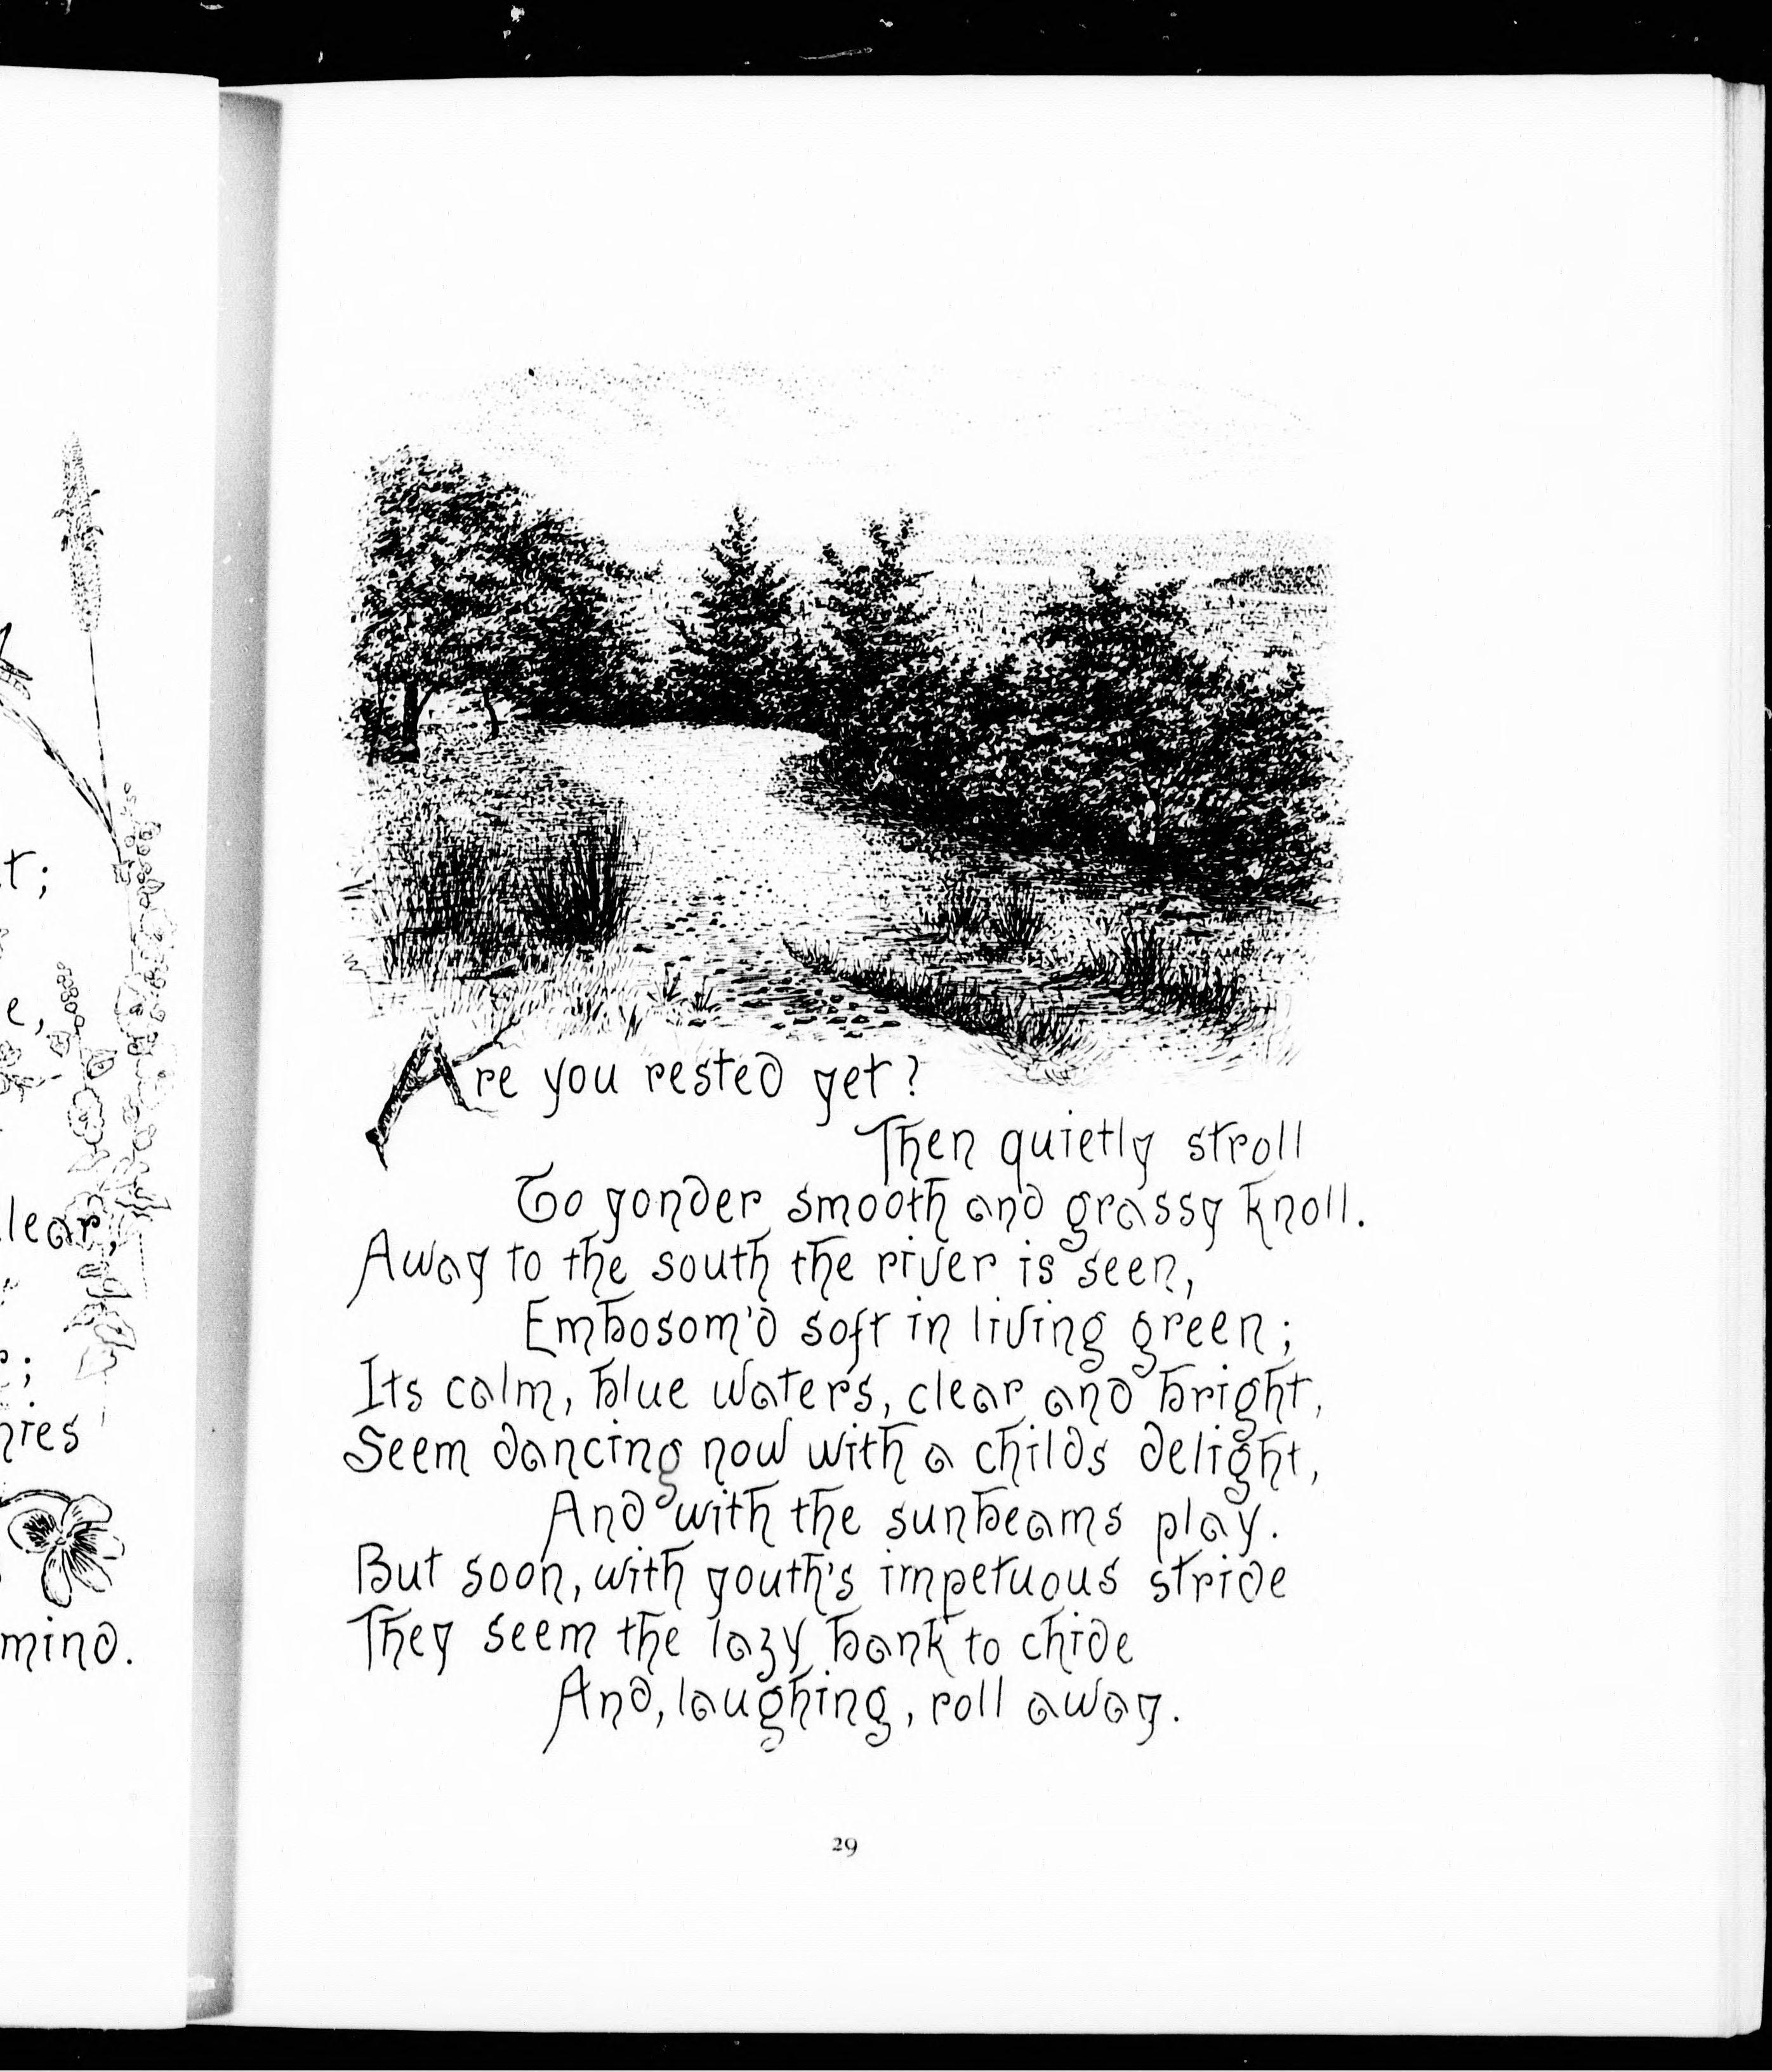 t;
e,
lear,
;
nies
mind.
Are you rested yet?
Then quietly stroll
To yonder smooth and grassy knoll.
Away to the south the river is seen,
Embosom'd soft in living green;
Its calm, blue waters, clear and bright,
Seem dancing now with a childs delight,
And with the sunbeams play.
But soon, with youth's impetuous stride
They seem the lazy bank to chide
And, laughing, roll away.
29